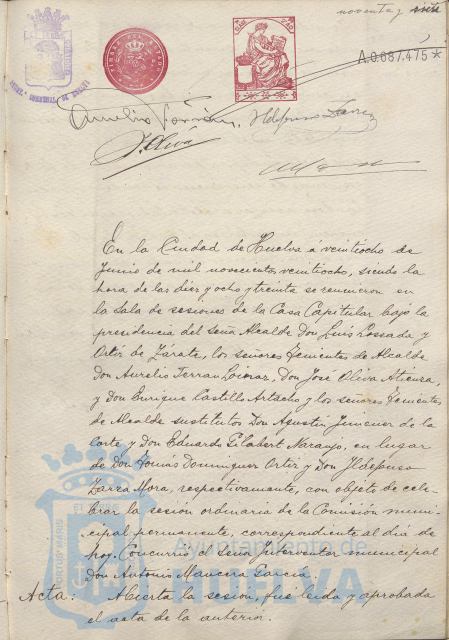 noventa y siete
A.0.687.475*
Aurelio
J. Oliva
Ildefonso Zarra
En la Ciudad de Huelva á veintiocho de
Junio de mil novecientos veintiocho, siendo la
hora de las diez y ocho y treinta se reunieron en
la Sala de sesiones de la Casa Capitular bajo la
presidencia del Señor Alcalde Don Luis Lossada y
Ortiz de Zárate, los señores Tenientes de Alcalde
Don Aurelio Terran, Don José Oliva Atienza,
y Don Enrique Castillo Artacho y los señores Tenientes
de Alcalde sustitutos Don Agustín Jimenez de la
Corte y Don Eduardo Gilabert Naranjo, en lugar
de Don Tomás Dominguez Ortiz y Don Ildefonso
Zarra Mora, respectivamente, con objeto de cele-
brar la sesión ordinaria de la Comisión muni-
cipal permanente, correspondiente al día de
hoy. Concurrió el Señor Interventor municipal
Don Antonio Garcia.
Acta: Abierta la sesión, fué leida y aprobada
el acta de la anterior.
PORTUS MARIS
Ayuntamiento de
HUELVA